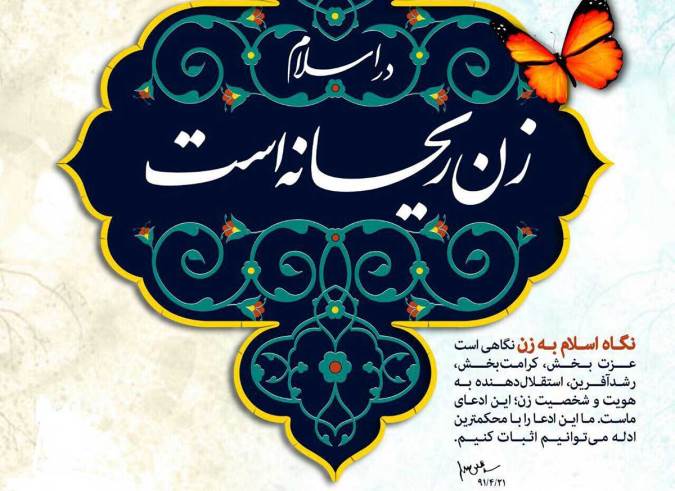 در اسلام
زن ریحانه است
نگاه اسلام به زن نگاهی است
عزت بخش، کرامت‌بخش،
رشدآفرین، استقلال‌دهنده به
هویت و شخصیت زن؛ این ادعای
ماست. ما این ادعا را با محکمترین
ادله می‌توانیم اثبات کنیم.
۹۱/۴/۲۱